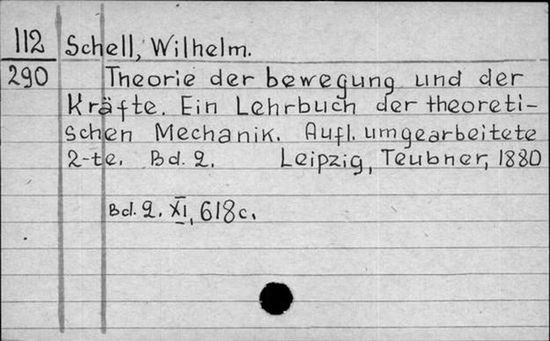 112 Schell, Wilhelm.
290 Theorie der bewegung und der
Kräfte. Ein Lehrbuch der theoreti-
schen Mechanik. Aufl. umgearbeitete
2-te. Bd. 2. Leipzig, Teubner, 1880
Bd. 2. XI, 618c.